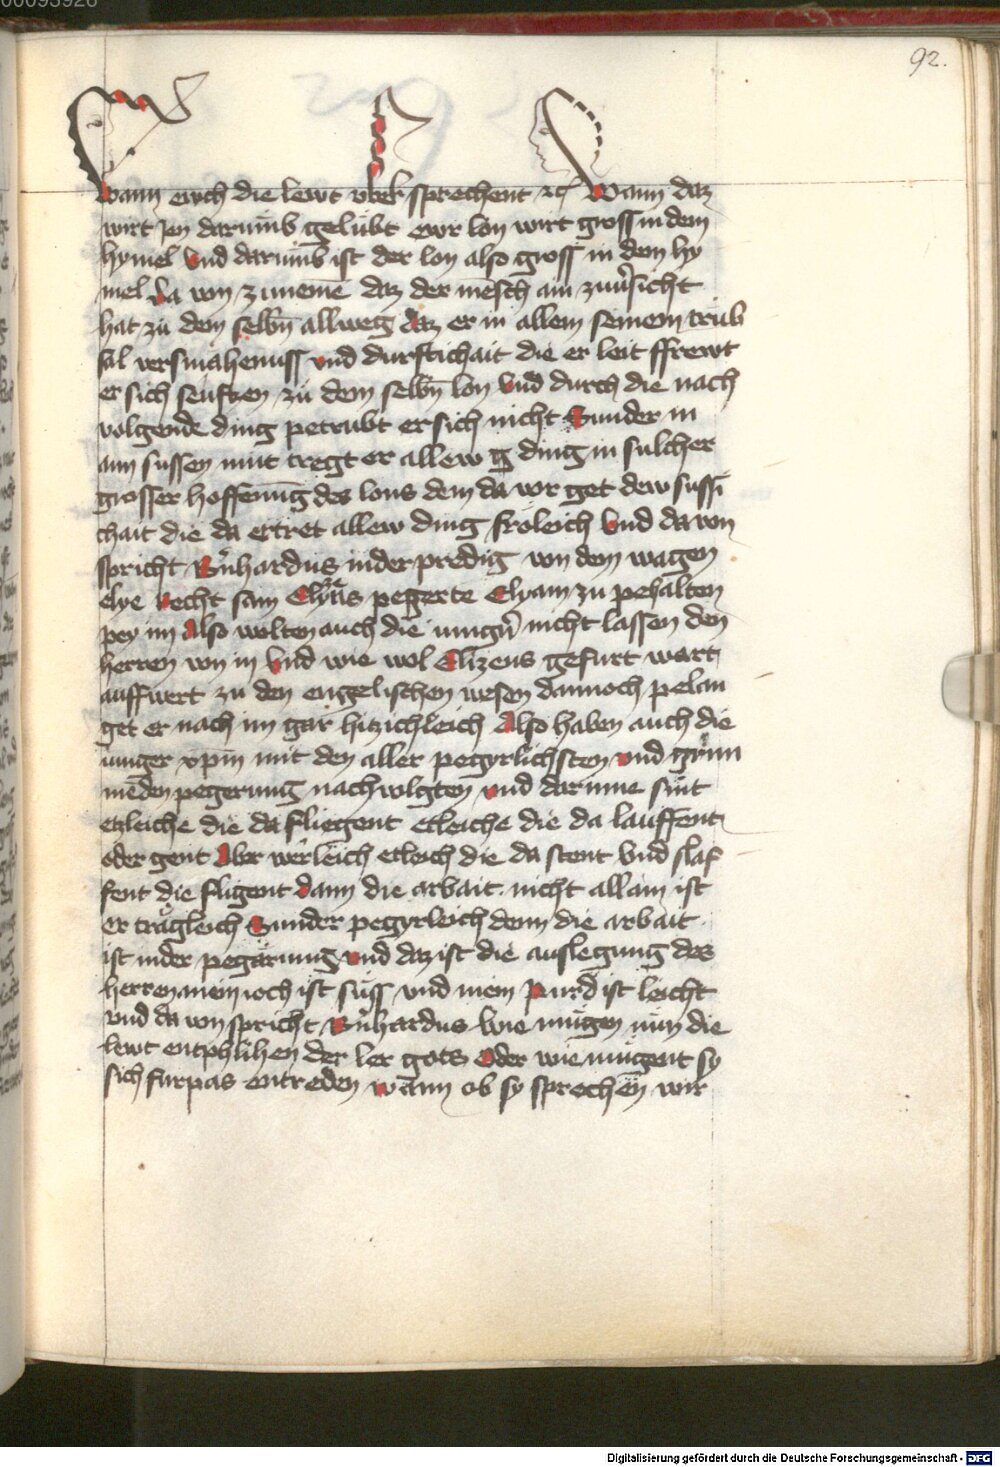 00093926
92.
Wann ewch die lewt vbel sprechent ꝛc Wann daz
wirt jen darumb gelubt ewr lon wirt gross in dem
hymel Vnd darumb ist der lon also gross in dem hy
mel Da von zunemē daz der mēsch ain zuuͦsicht
hat zu dem selbn̄ allweg daz er in allem seinem trub
sal versmahenuss vnd durftichait die er leit ffrewt
er sich seuftzen zu dem selbn̄ lon Vnd durch die nach
volgende ding petrubt er sich nicht Sunder in
aim sussen mut tregt er allew g ding in sulcher
grosser hoffenūg des lons dem da vor get dew sussi
chait die da ertret allew ding froleich Vnd da von
spricht Bn̄hardus in der predig von dem wagen
elye Recht sam Elyzeus pegerte Elyam zu pehalten
pey im Also wolten auch die iunger nicht lassen den
herren von in Vnd wie wol Elizeus gefurt wart
auffwert zu den engelischen wesen dannoch pelan
get er nach im gar hitzichleich Also haben auch die
iunger xp̄m mit den aller pegyrlichsten vnd prin
nēden pegerung nachuolgten vnd darumme sint
etzleiche die da fliegent etleiche die da lauffent
oder gent Aber werleich etleich die da stent Vnd slaf
fent die fligent dann die arbait nicht allain ist
er tragleich Sunder pegyrleich denn die arbait
ist in der pegarung vnd daz ist die auslegung des
herren mein ioch ist suss vnd mein Purd ist leicht
vnd da von spricht Bn̄hardus Wie mugen nun die
lewt entphlihen der ler gots Oder wie mugent sy
sich furpas entreden Wann ob sy sprechen wir
Digitalisierung gefördert durch die Deutsche Forschungsgemeinschaft - DFG